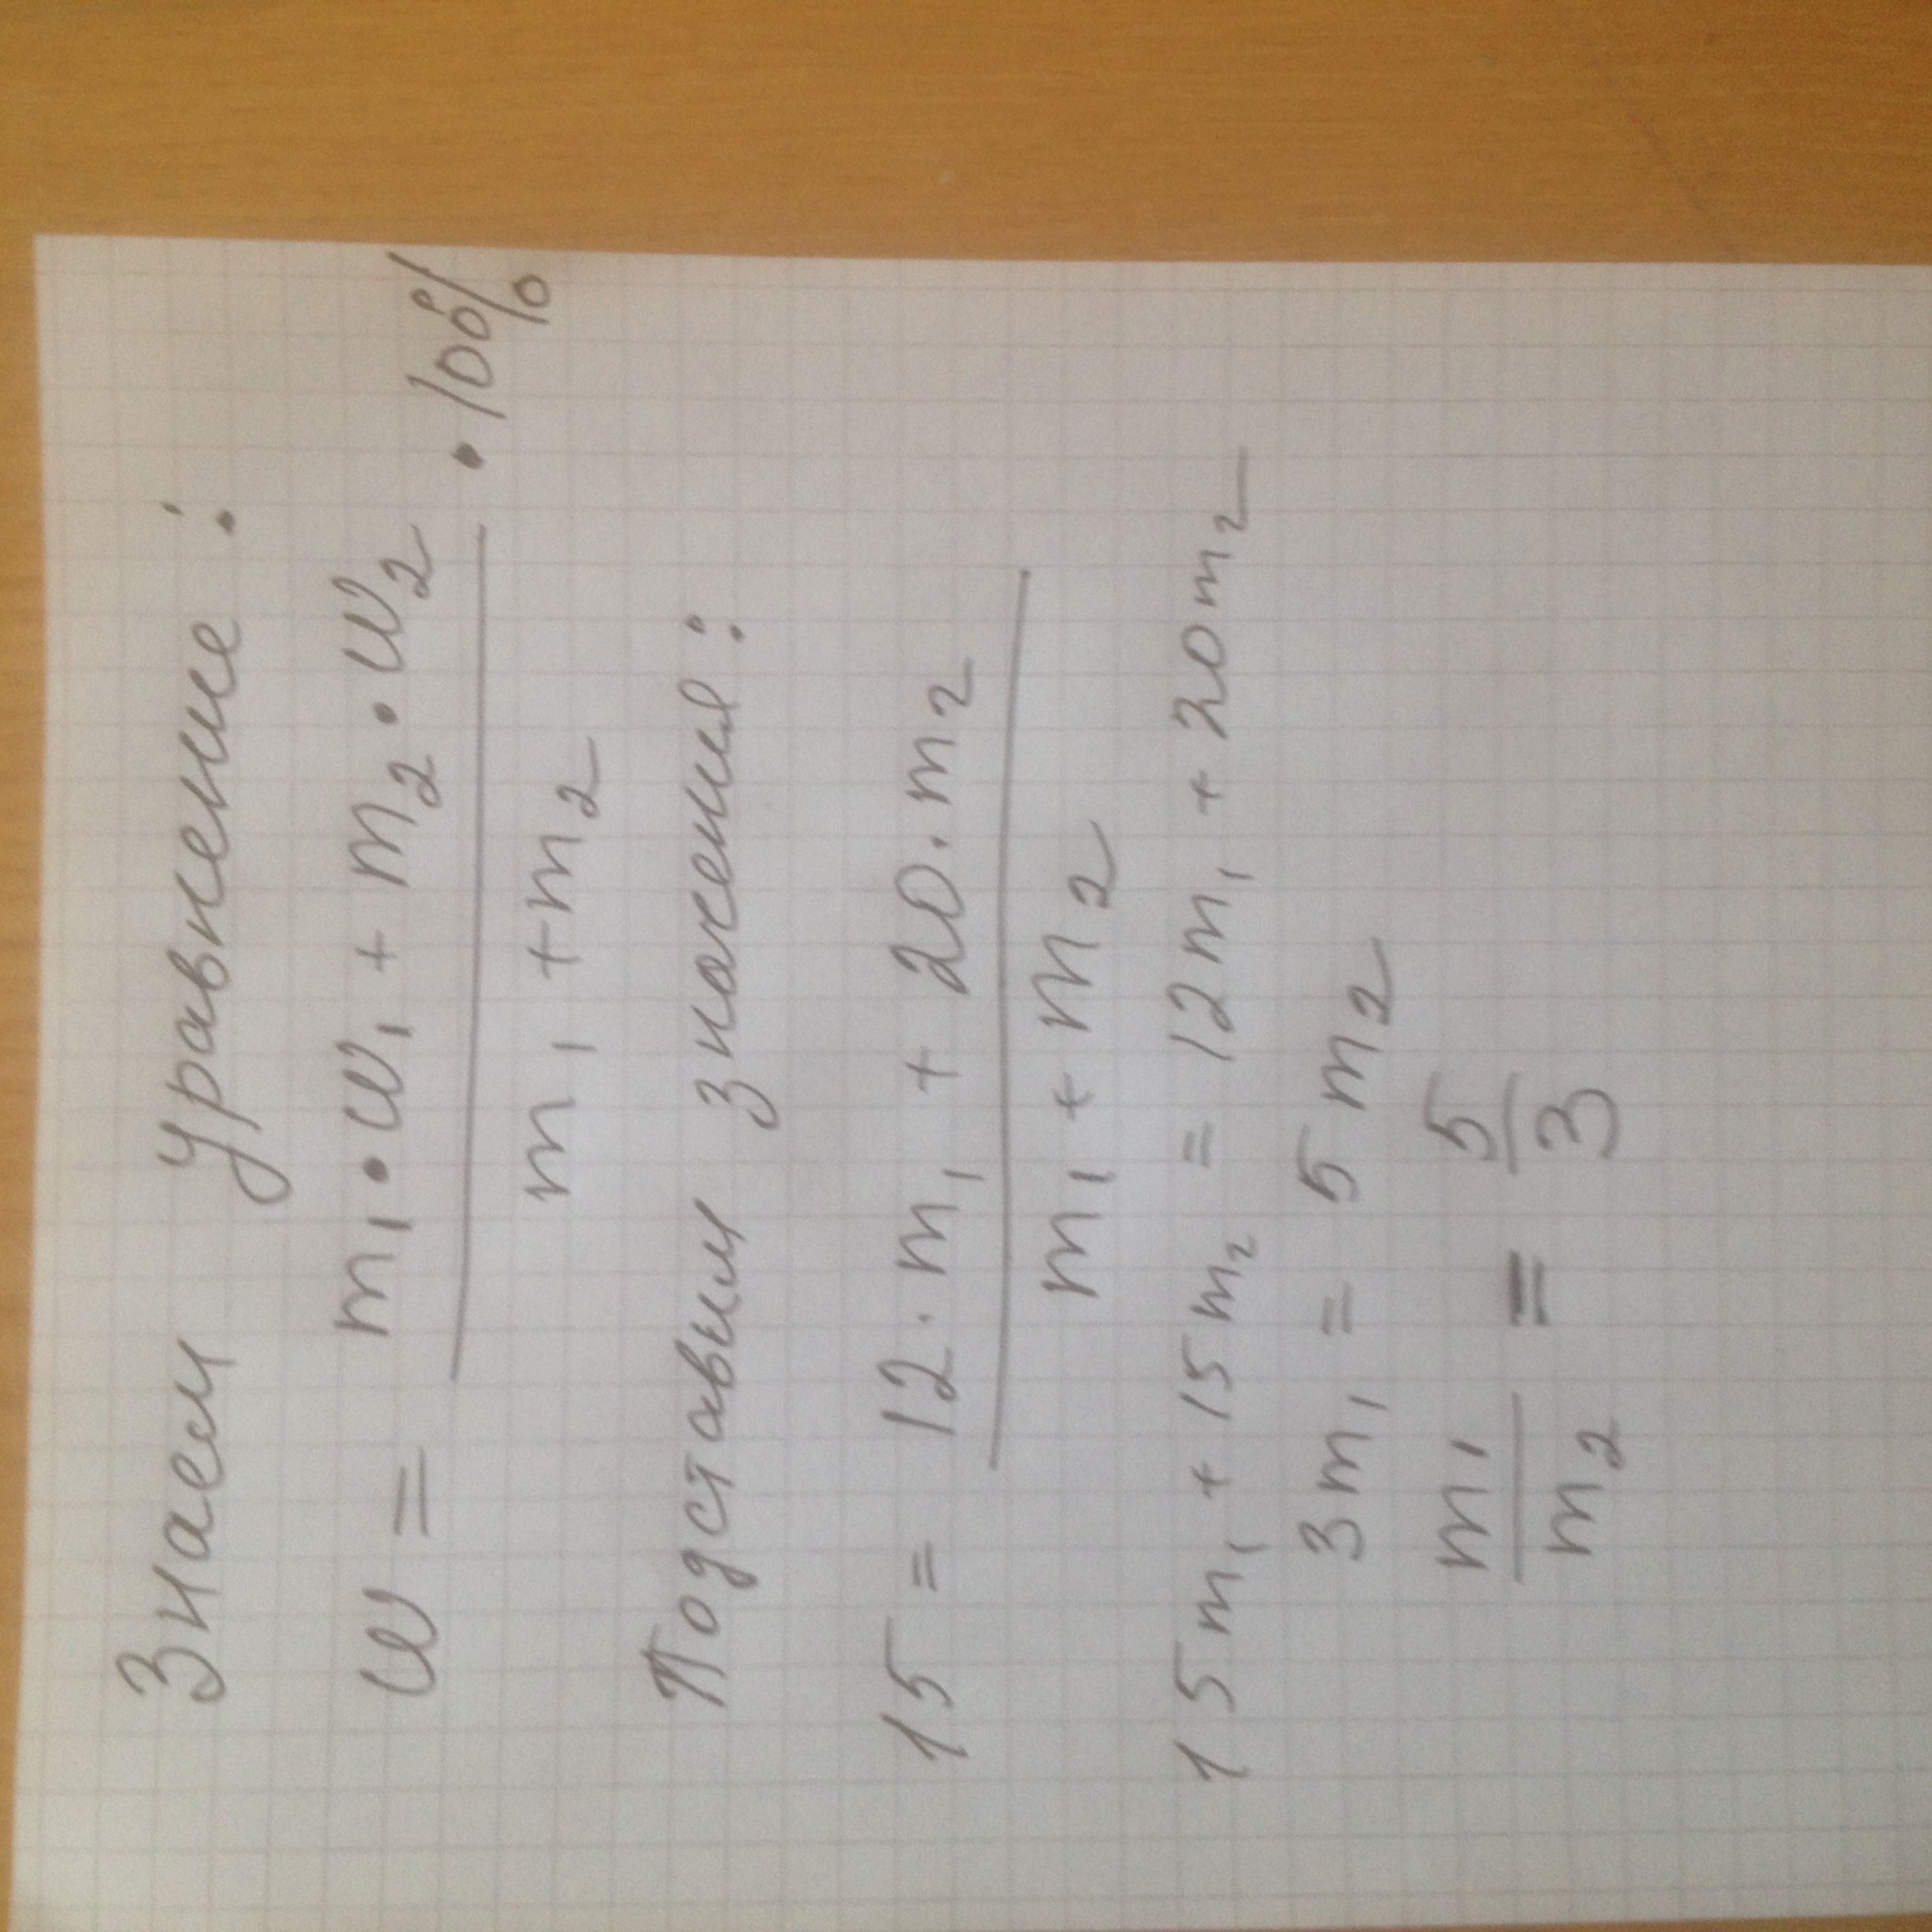 Знаем уравнение:
w = m₁·w₁ + m₂·w₂ / m₁ + m₂ · 100%
Подставим значения:
15 = 12·m₁ + 20·m₂ / m₁ + m₂
15m₁ + 15m₂ = 12m₁ + 20m₂
3m₁ = 5m₂
m₁ / m₂ = 5 / 3